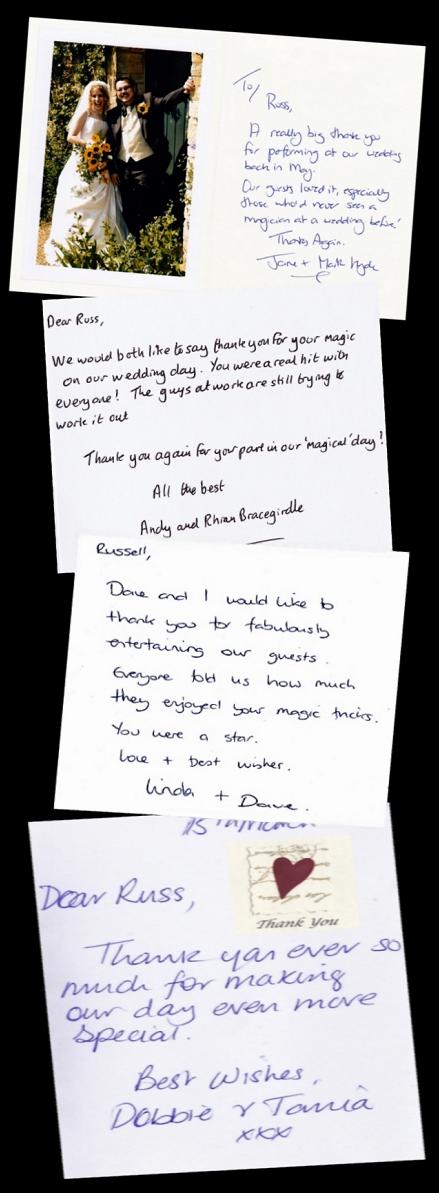 To/
Russ,
A really big thank you
for peforming at our wedding
back in May.
Our guests loved it, especially
those who'd never seen a
magician at a wedding before!
Thanks Again.
Jane + Mark Hyde
Dear Russ,
We would both like to say thank you for your magic
on our wedding day. You were a real hit with
everyone! The guys at work are still trying to
work it out
Thank you again for your part in our 'magical' day!
All the best
Andy and Rhian Bracegirdle
Russell,
Dave and I would like to
thank you for fabulously
entertaining our guests.
Everyone told us how much
they enjoyed your magic tricks.
You were a star.
love + best wishes.
Linda + Dave.
Dear Russ,
Thank You
Thank you ever so
much for making
our day even more
special.
Best Wishes,
Debbie & Tania
xxx